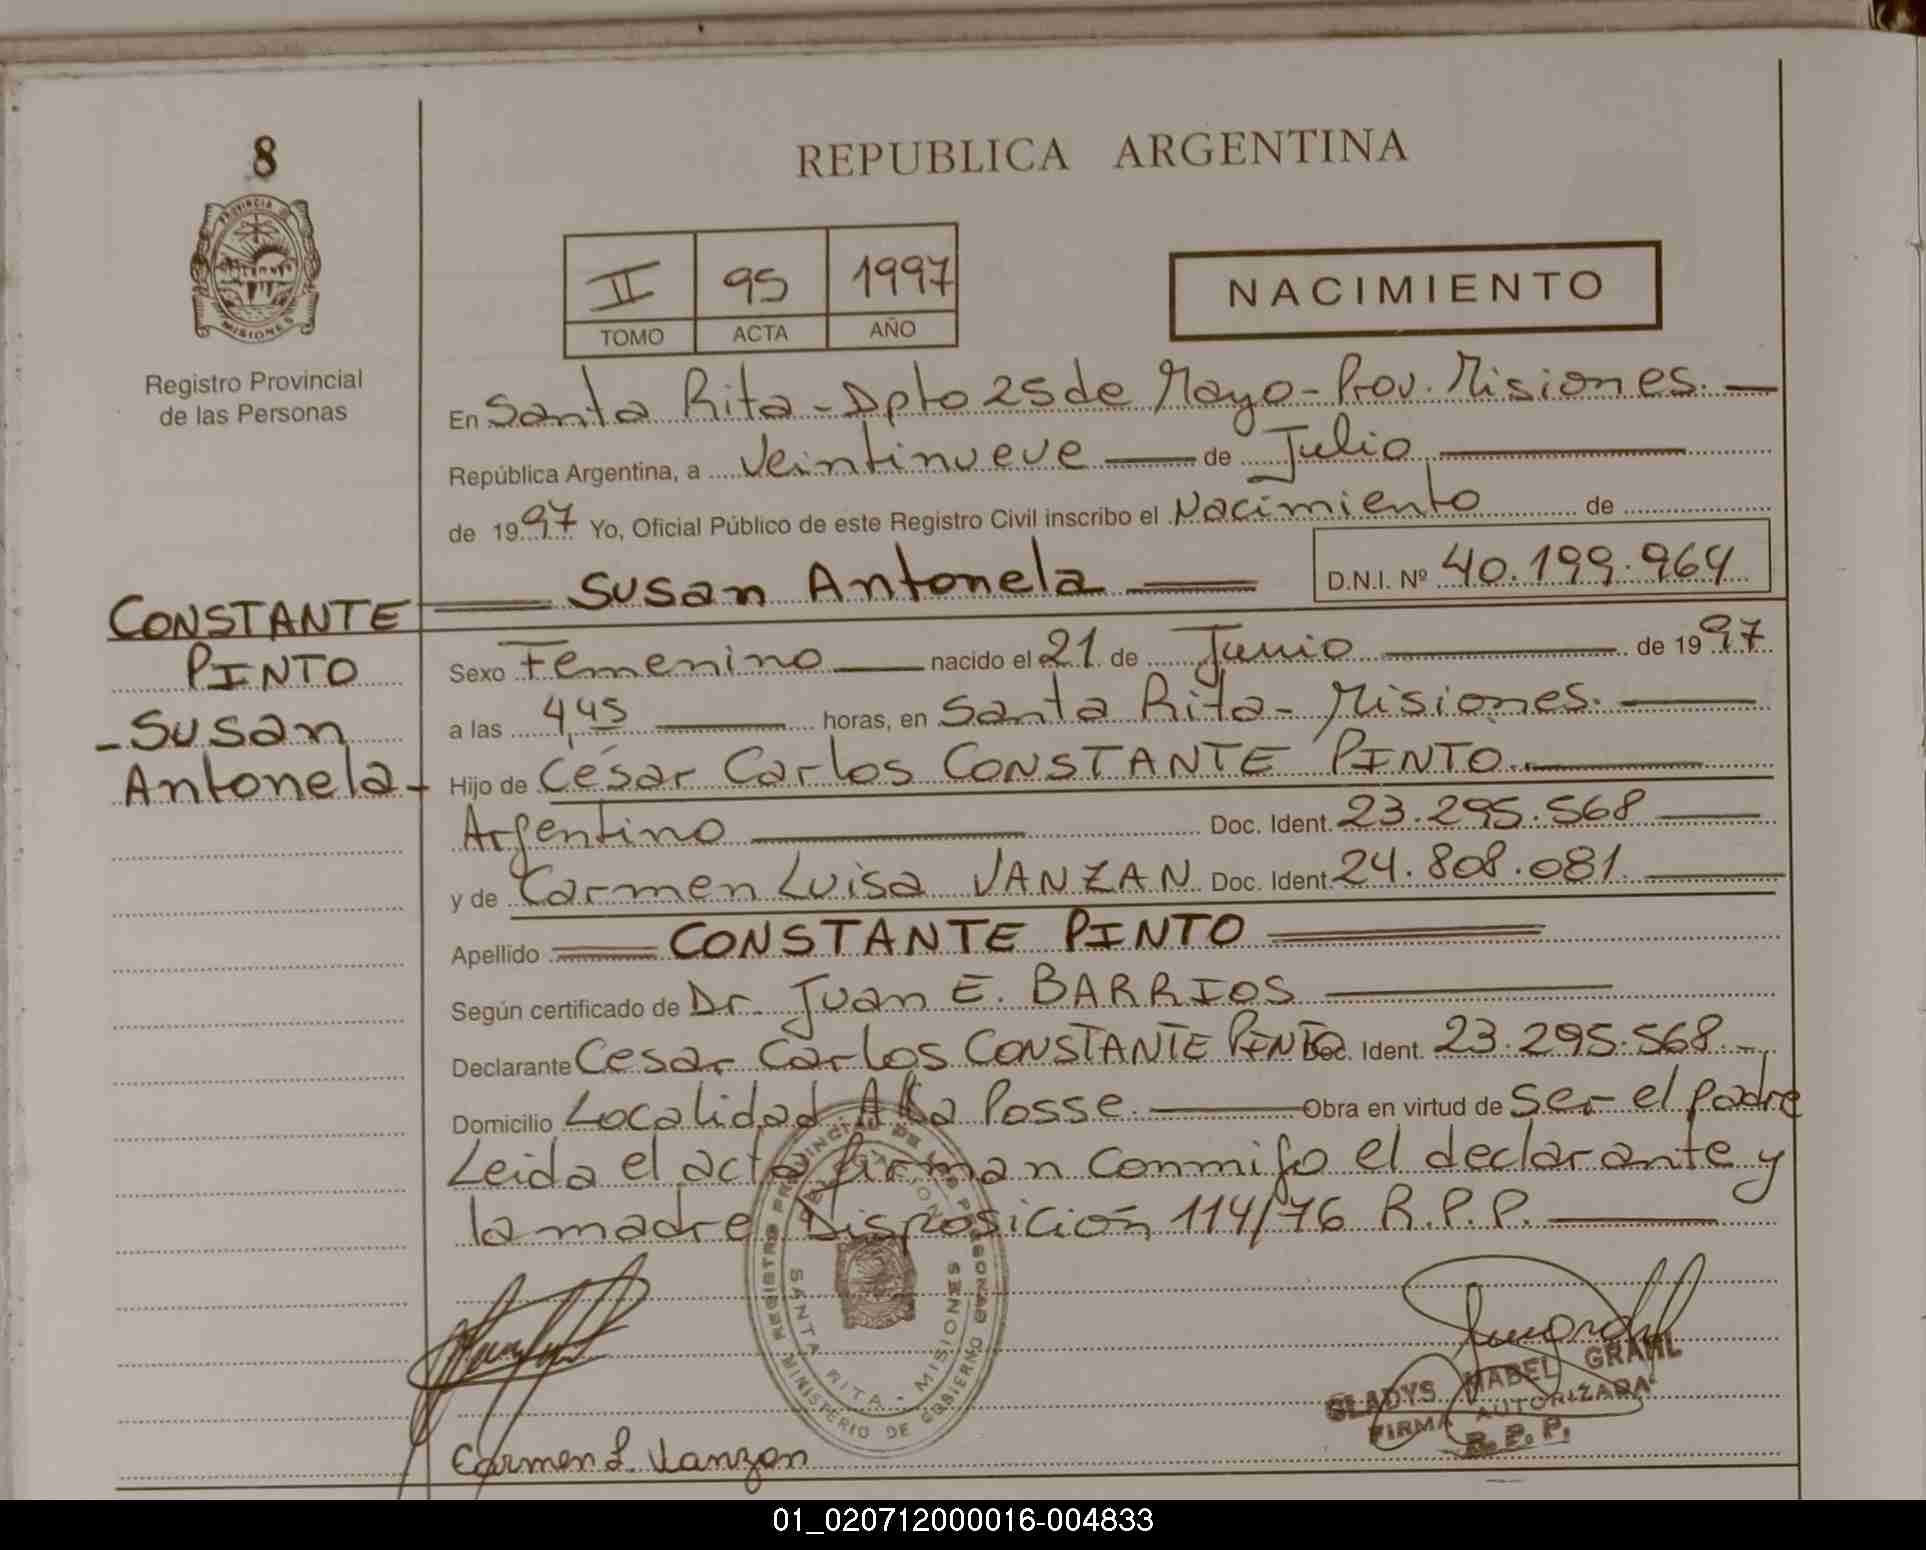 8
REPUBLICA ARGENTINA
PROVINCIA DE
MISIONES
Registro Provincial
de las Personas
II 95 1997
TOMO ACTA AÑO
NACIMIENTO
En Santa Rita - Dpto 25 de Mayo - Prov. Misiones.
República Argentina, a Veintinueve de Julio
de 1997 Yo, Oficial Público de este Registro Civil inscribo el Nacimiento de
Susan Antonela D.N.I. Nº 40.199.964
CONSTANTE
PINTO
- Susan
Antonela -
Sexo Femenino nacido el 21 de Junio de 1997
a las 4,45 horas, en Santa Rita - Misiones.
Hijo de César Carlos CONSTANTE PINTO.
Argentino Doc. Ident. 23.295.568
y de Carmen Luisa VANZAN Doc. Ident. 24.808.081.
Apellido CONSTANTE PINTO
Según certificado de Dr. Juan E. BARRIOS
Declarante Cesar Carlos CONSTANTE PINTO Doc. Ident. 23.295.568.-
Domicilio Localidad Alba Posse. Obra en virtud de ser el padre
Leida el acta firman conmigo el declarante y
la madre Disposición 114/76 R.P.P.
REGISTRO PROVINCIAL DE LAS PERSONAS
SANTA RITA - MISIONES
MINISTERIO DE GOBIERNO
GLADYS MABEL GRAHL
FIRMA AUTORIZADA
R.P.P.
Carmen L. Vanzan
01_020712000016-004833